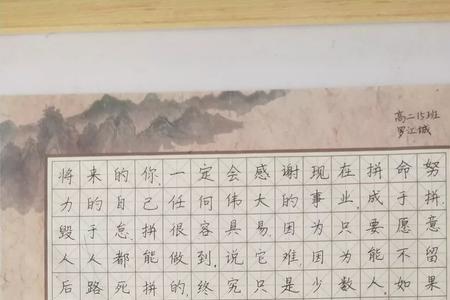 高二15班
罗江城
将来的你,一定会感谢现在拼命努
力的自己任何伟大的事业,成于拼,
毁于怠.拼很容具易,因为只要愿意
人人都能做到,说它难,因为能不留
后路死拼的,终究只是少数人.如果